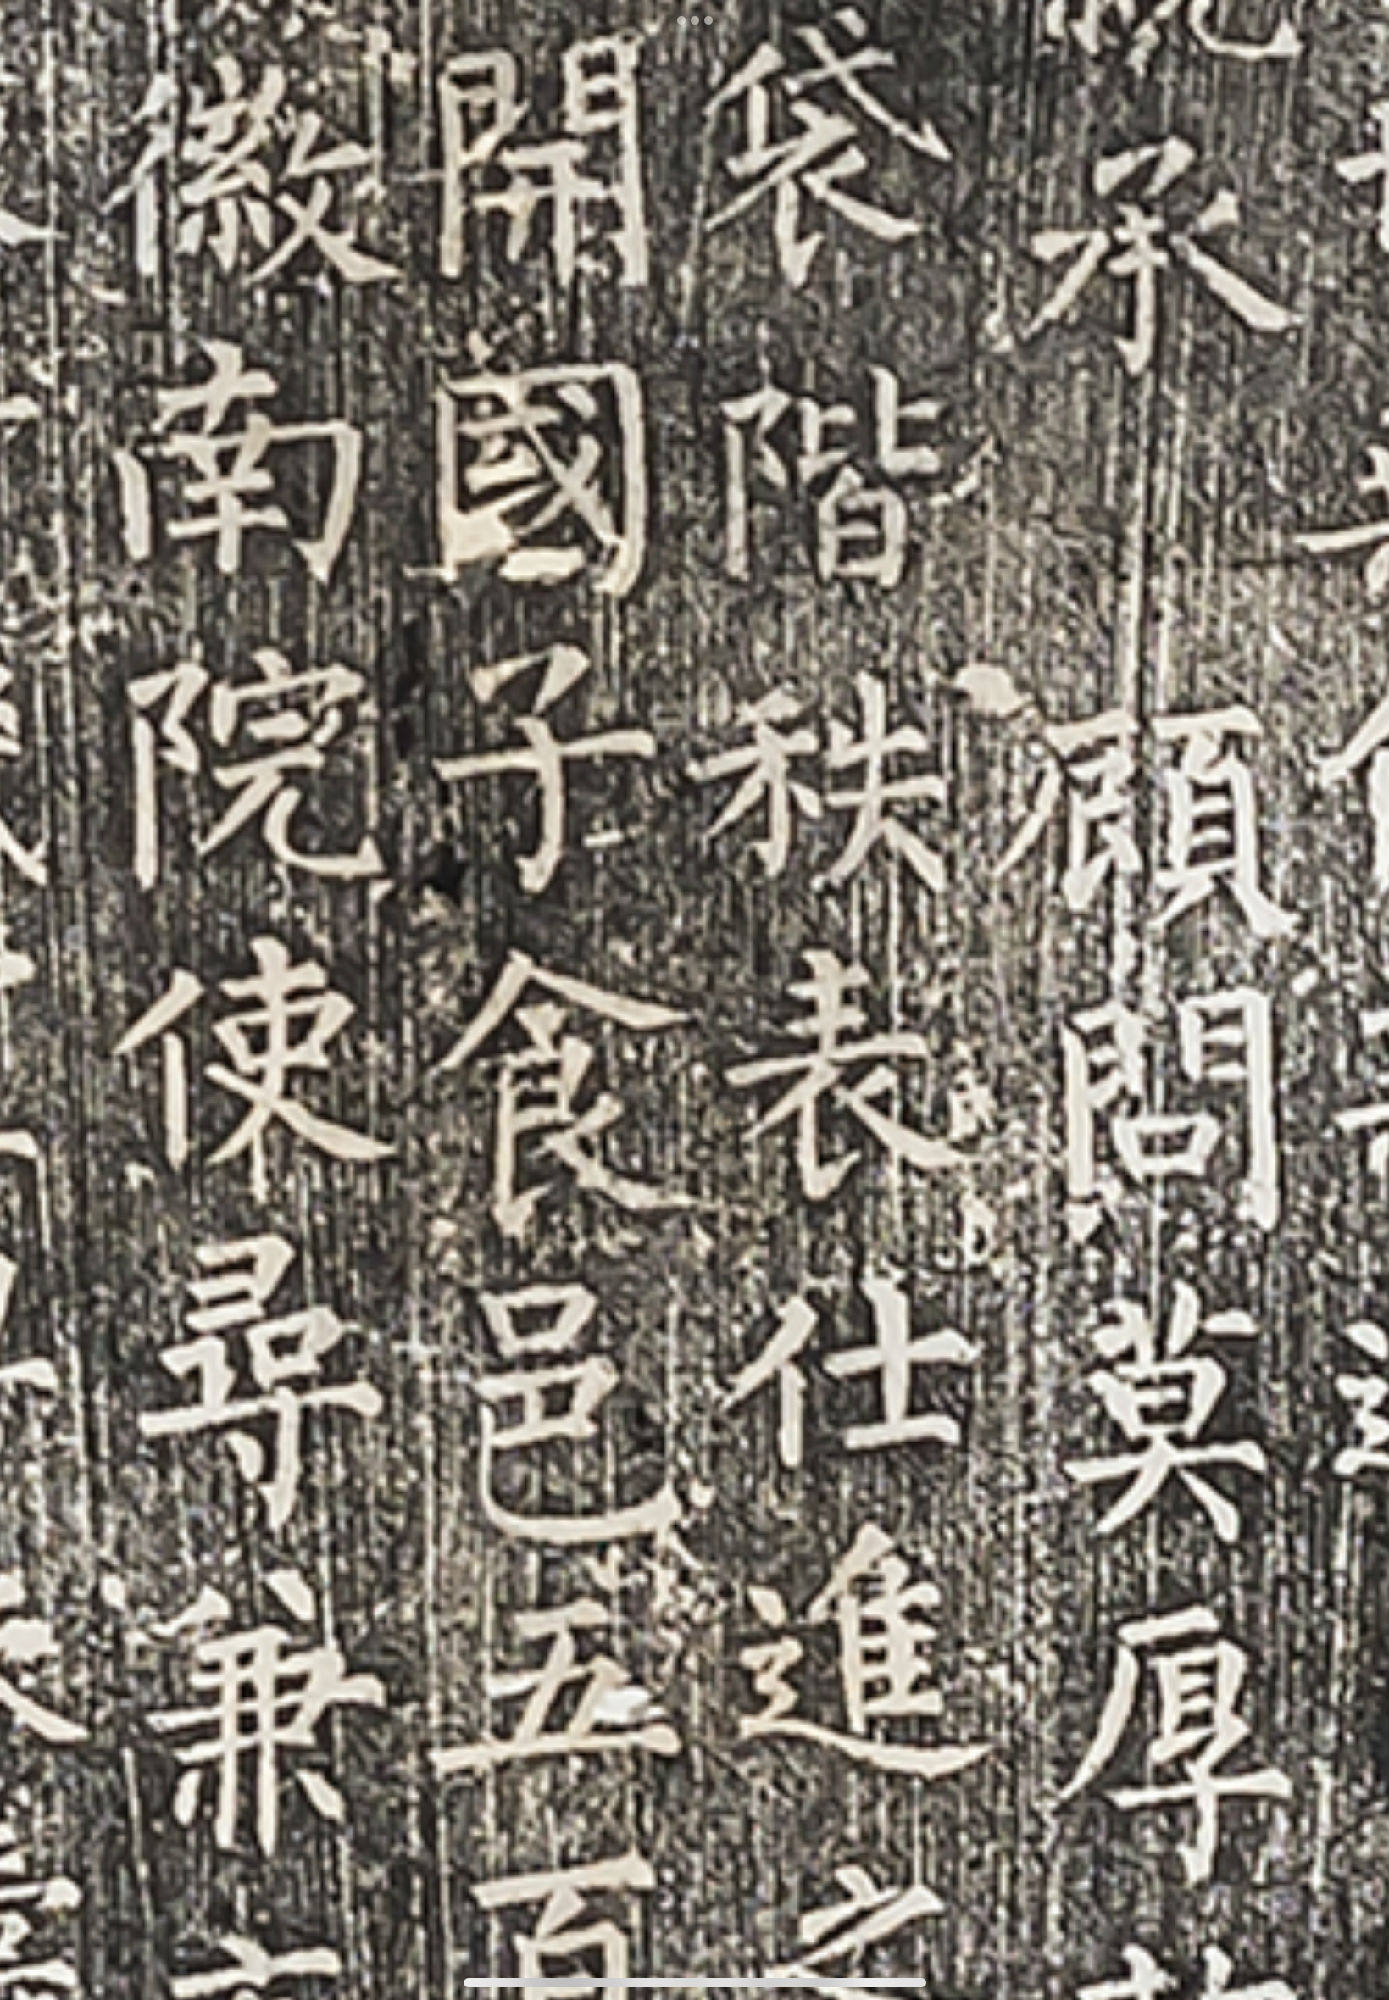 承 顧問莫厚
袋階秩表仕進之
開國子食邑五百
徽南院使尋兼